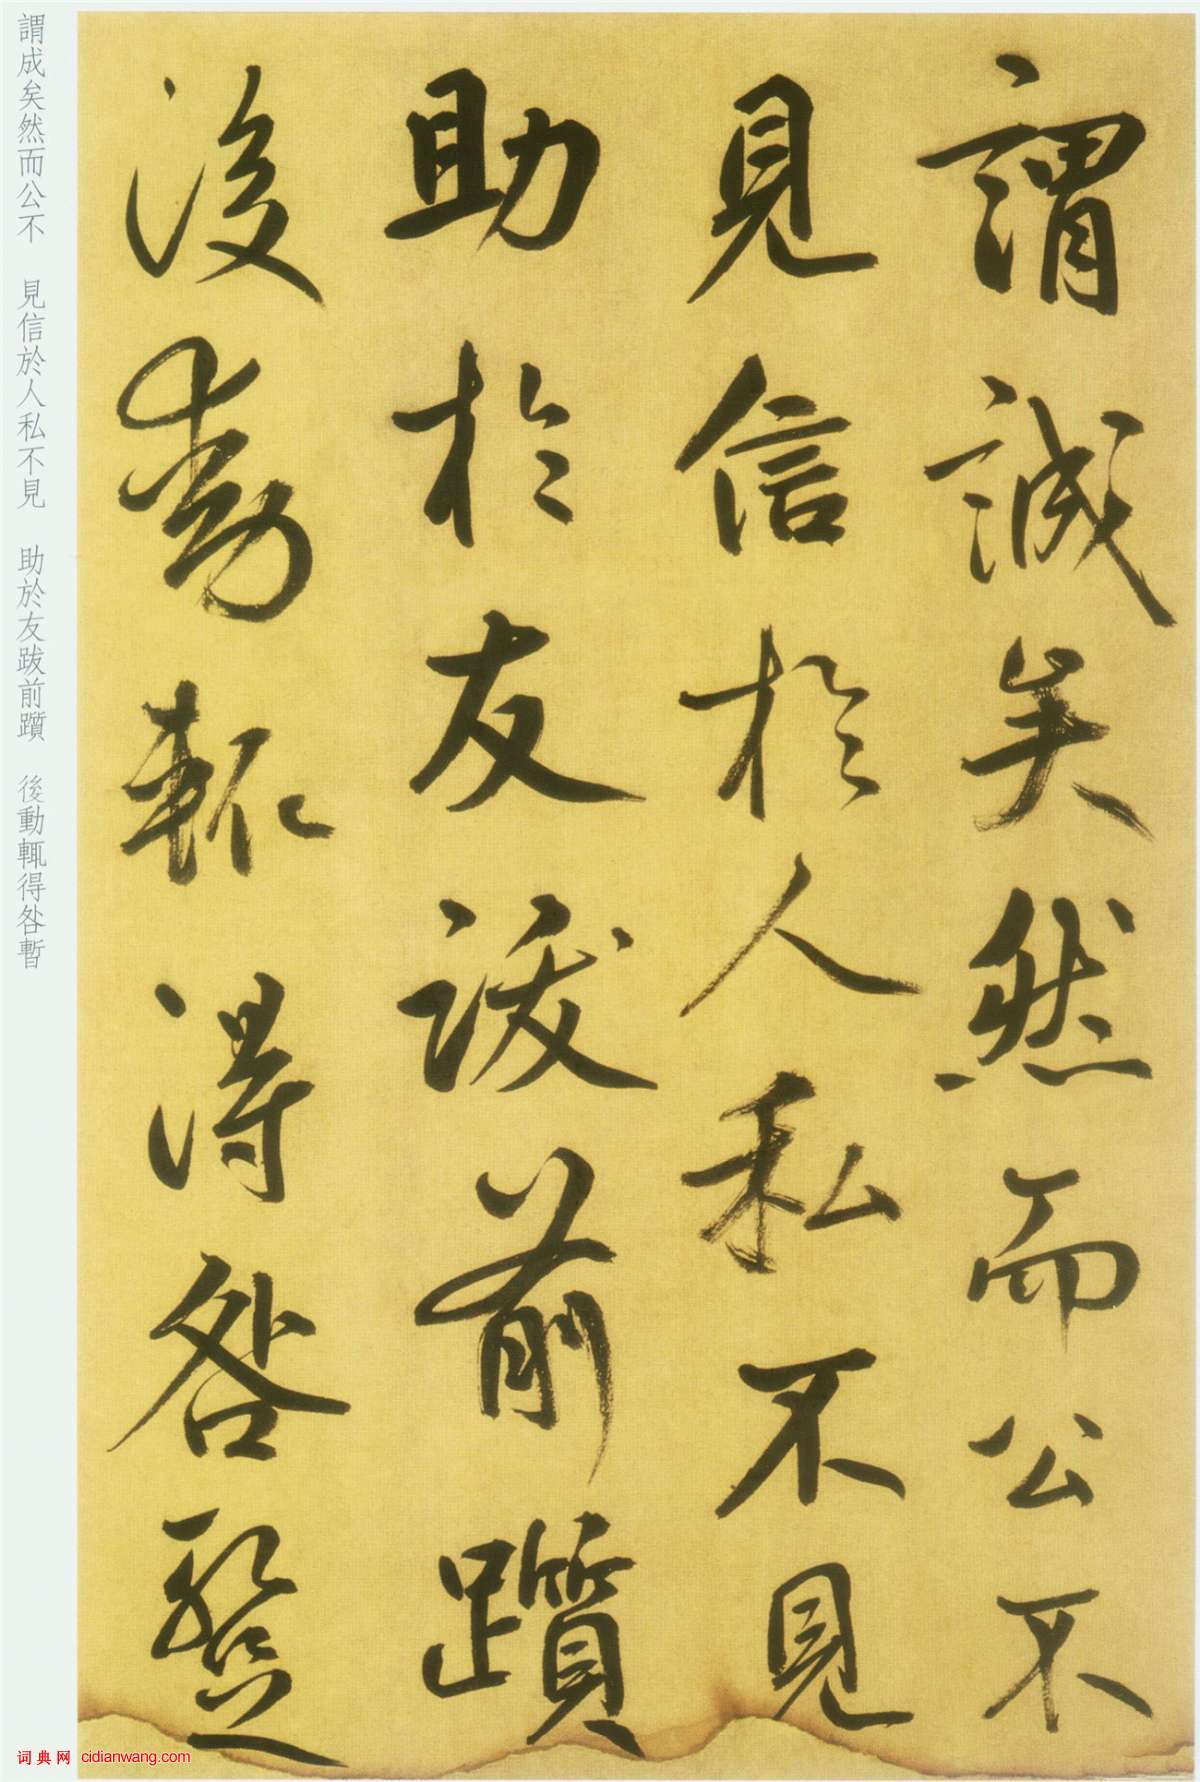 謂誠矣然而公不
見信於人私不見
助於友跋前躓
後動輒得咎暫
謂成矣然而公不 見信於人私不見 助於友跋前躓 後動輒得咎暫
词典网 cidianwang.com